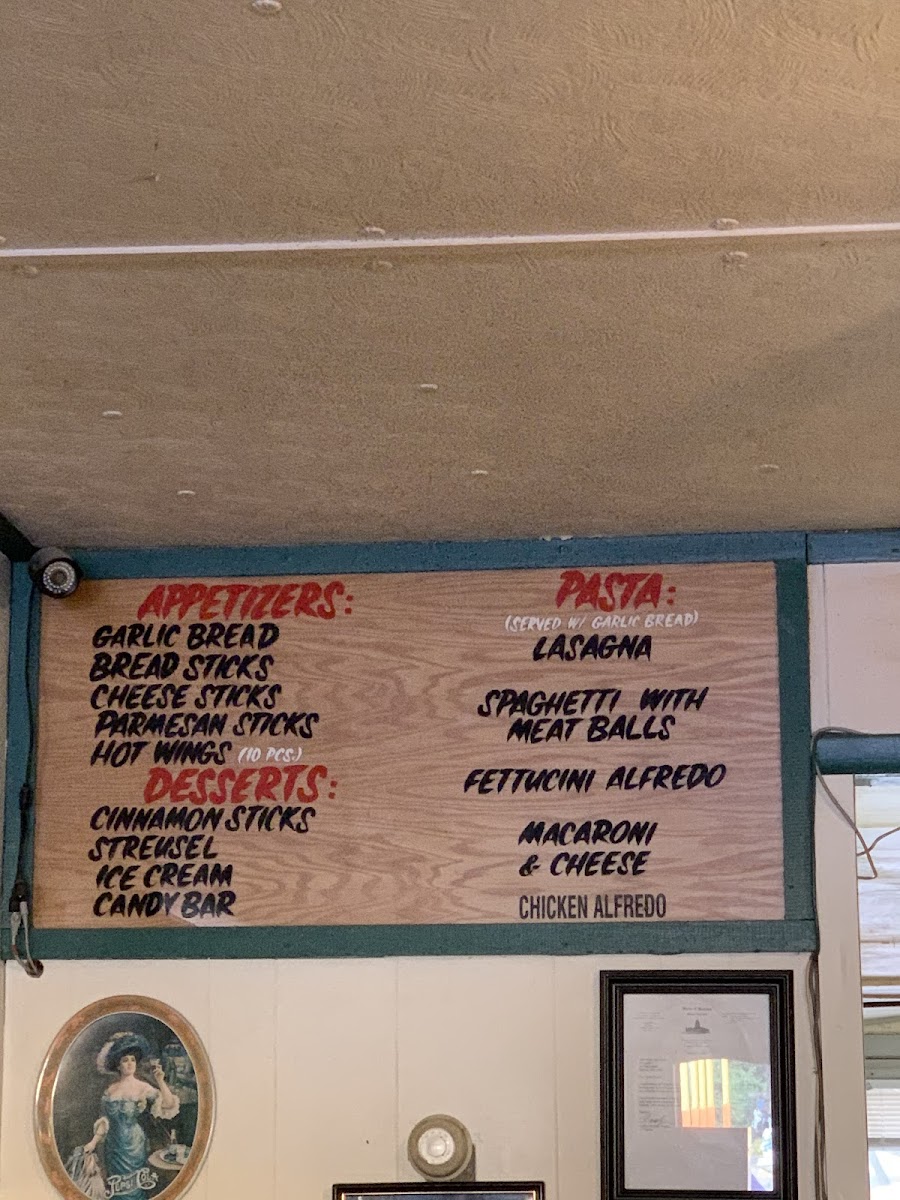 APPETIZERS:
GARLIC BREAD
BREAD STICKS
CHEESE STICKS
PARMESAN STICKS
HOT WINGS (10 PCS.)
DESSERTS:
CINNAMON STICKS
STREUSEL
ICE CREAM
CANDY BAR
PASTA:
(SERVED W/ GARLIC BREAD)
LASAGNA
SPAGHETTI WITH
MEAT BALLS
FETTUCINI ALFREDO
MACARONI
& CHEESE
CHICKEN ALFREDO
PEPSI COLA